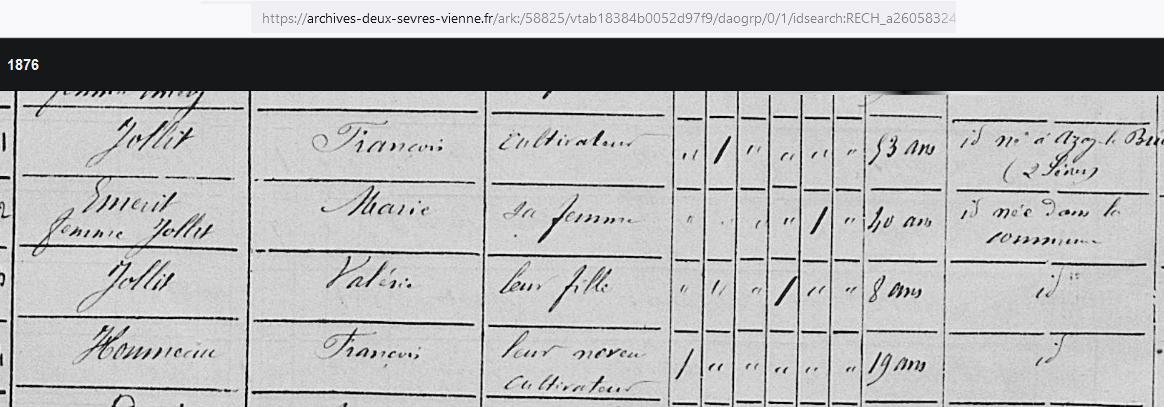 https://archives-deux-sevres-vienne.fr/ark:/58825/vtab18384b0052d97f9/daogrp/0/1/idsearch:RECH_a26058324
1876
Jollit François cultivateur " 1 " " " " 53 ans id né à Azay le Bru
(2 Sèvres)
Emerit Marie sa femme " " " 1 " 40 ans id née dans la
femme Jollit commune
Jollit Valérie leur fille " " " 1 " " 8 ans id
Homméau François leur neveu 1 " " " " " 19 ans id
cultivateur